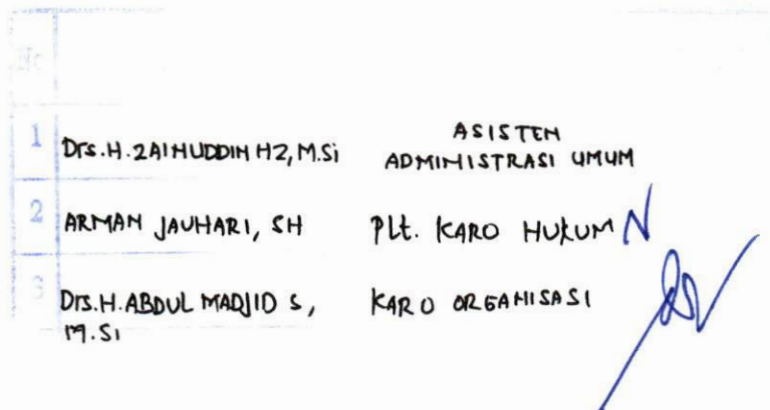 No
ASISTEN
1 Drs.H.ZAINUDDIN HZ, M.Si ADMINISTRASI UMUM
2 ARMAN JAUHARI, SH Plt. KARO HUKUM
3 Drs.H.ABDUL MADJID S, KARO ORGANISASI
M.Si